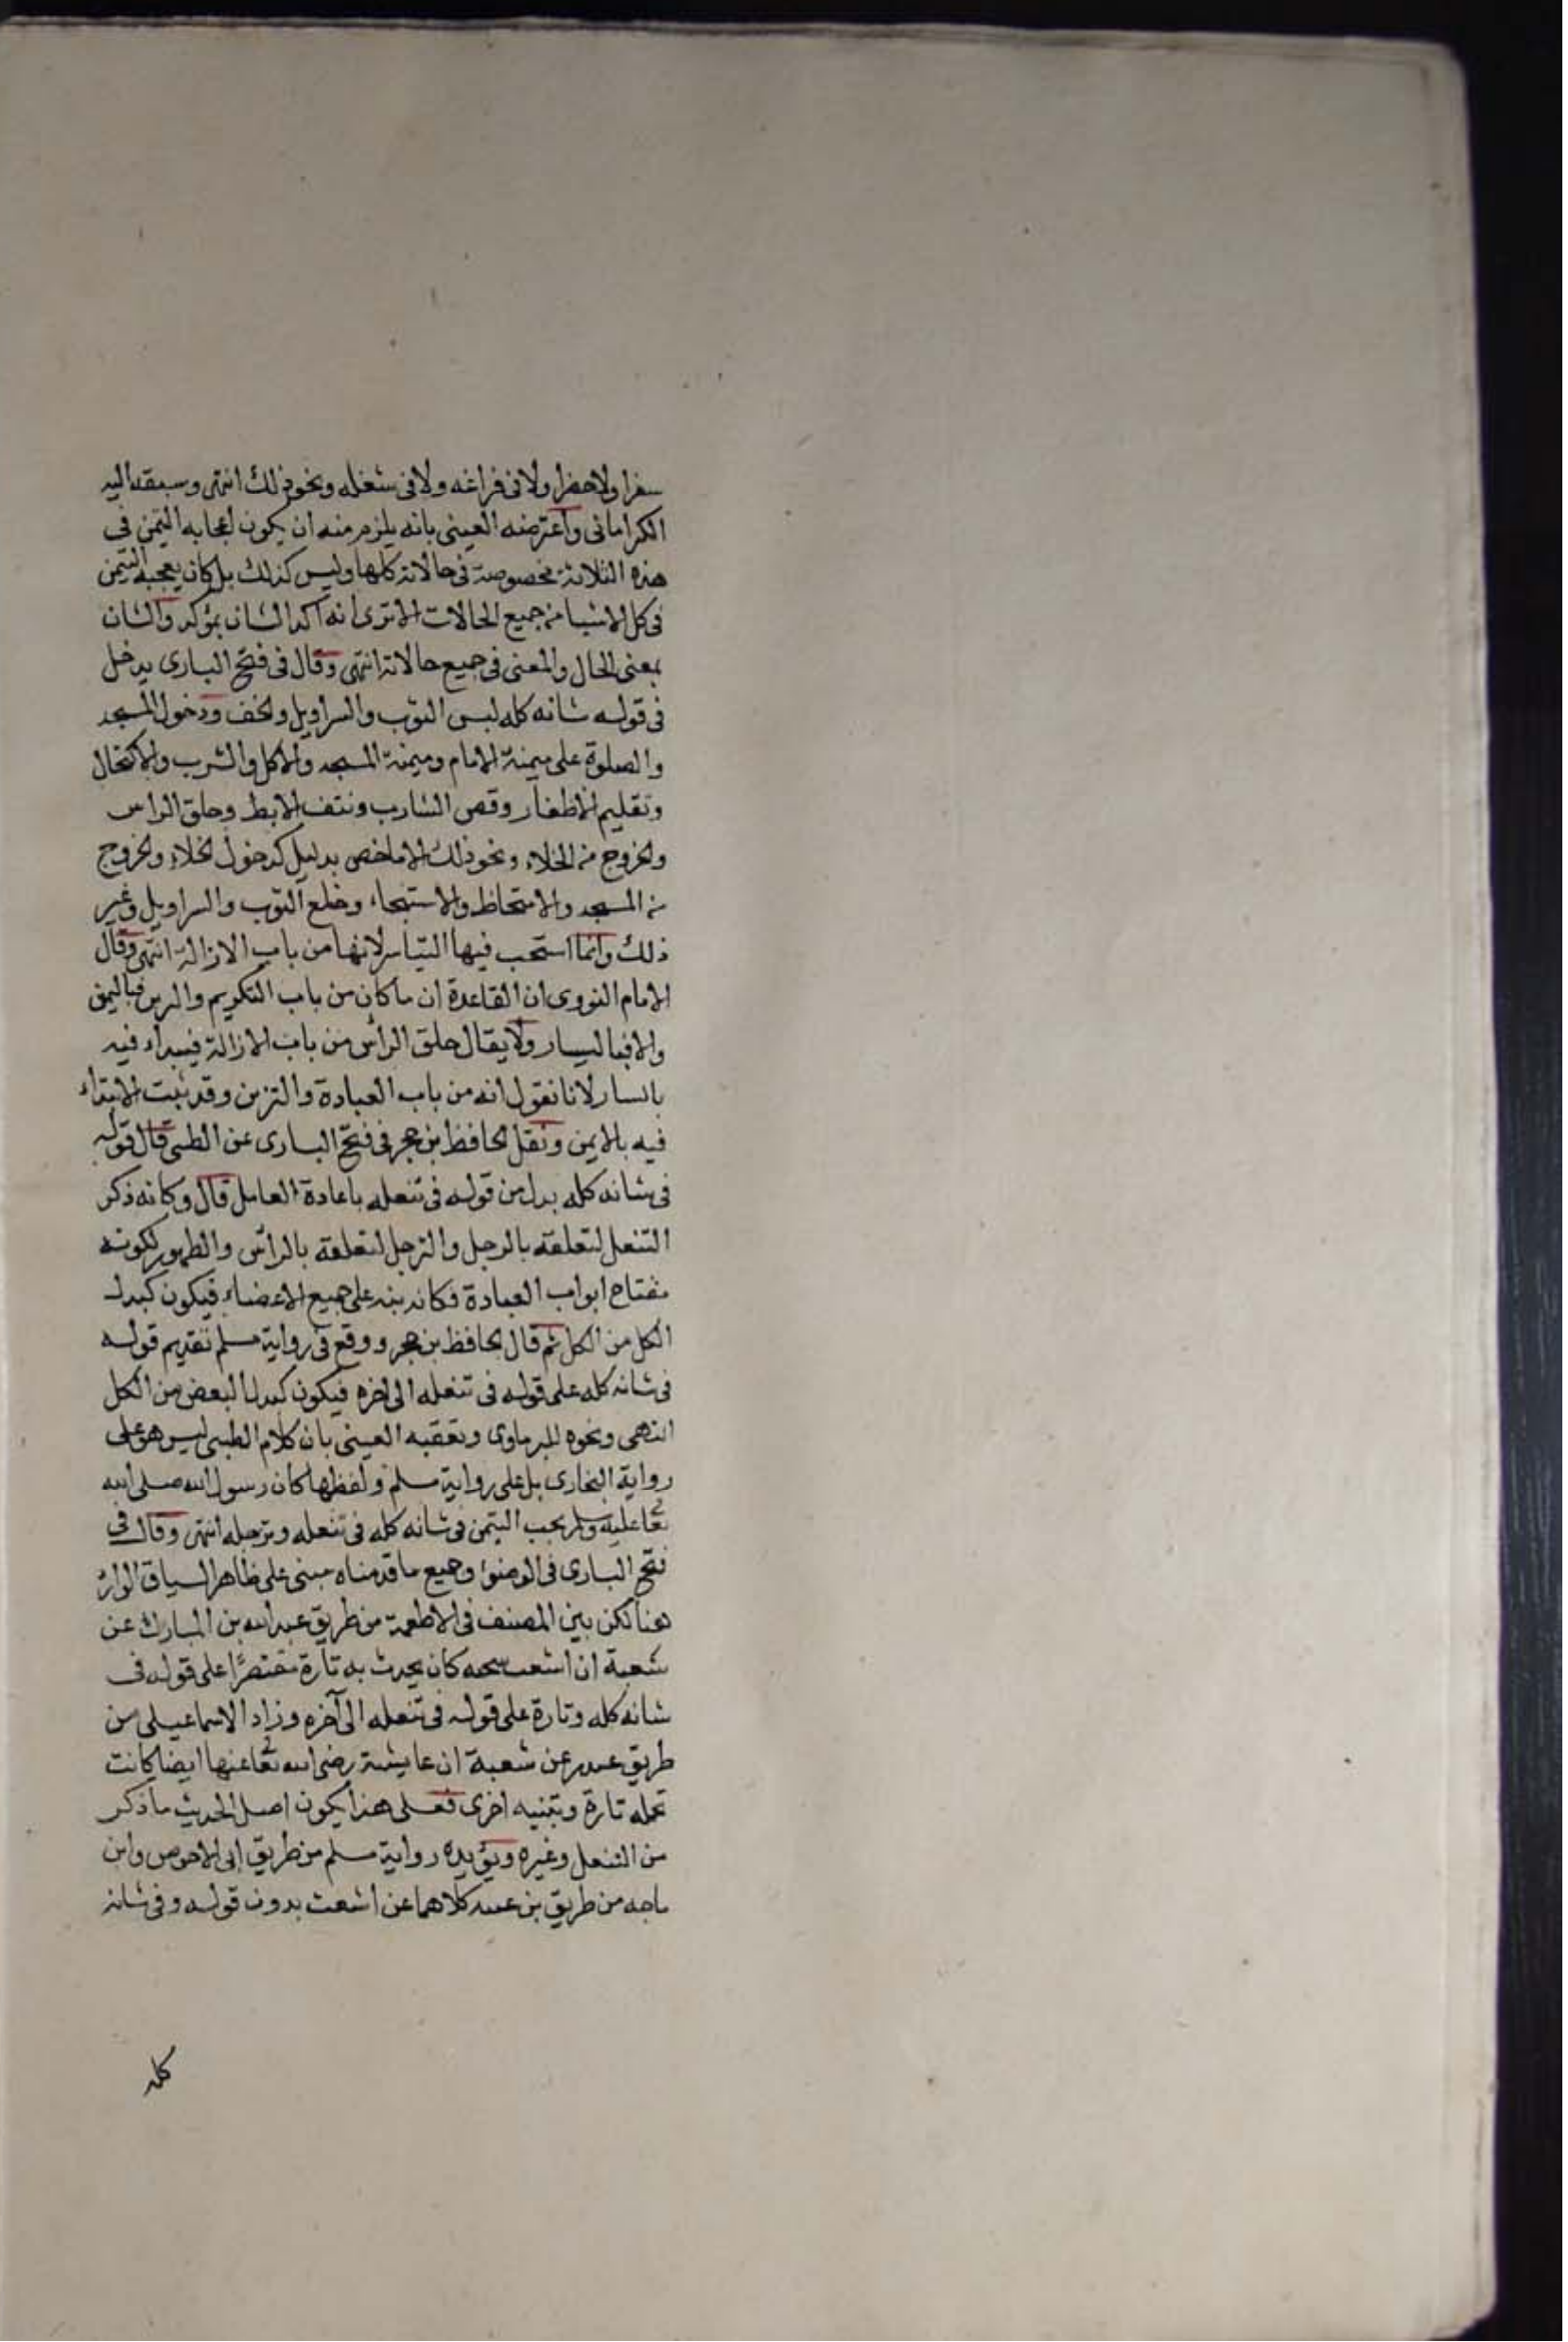 سفرا ولا حضرا ولا فى فراغه ولا فى شغله ونحو ذلك انتهى وسبقه اليه
الكرامانى واعترضه العينى بانه يلزم منه ان يكون اعجابه التيمن فى
هذه الثلاثة مخصوصة فى حالاته كلها وليس كذلك بل كان يعجبه التيمن
فى كل الاشيا من جميع الحالات الا ترى انه اكد الشان بمؤكد والشان
بمعنى الحال والمعنى فى جميع حالاته انتهى وقال فى فتح البارى يدخل
فى قوله شانه كله لبس الثوب والسراويل والخف ودخول المسجد
والصلوة على ميمنة الامام وميمنة المسجد والاكل والشرب والاكتحال
وتقليم الاظفار وقص الشارب ونتف الابط وحلق الراس
والخروج من الخلاء ونحو ذلك الا ما خص بدليل كدخول الخلاء والخروج
من المسجد والامتخاط والاستنجاء وخلع الثوب والسراويل وغير
ذلك وانما استحب فيها التياسر لانها من باب الازالة انتهى وقال
الامام النووى ان القاعدة ان ما كان من باب التكريم والزين فباليمين
والا فباليسار ولا يقال حلق الرأس من باب الازالة فيبداء فيه
بالسار لانا نقول انه من باب العبادة والتزين وقد ثبت الابتداء
فيه بالايمن ونقل الحافظ بن حجر فى فتح البارى عن الطيبى قال قوله
فى شانه كله بدل من قوله فى تنعله باعادة العامل قال وكانه ذكر
التنعل لتعلقه بالرجل والترجل لتعلقه بالرأس والطهور لكونه
مفتاح ابواب العبادة فكانه نبه على جميع الاعضاء فيكون كبدل
الكل من الكل ثم قال الحافظ بن حجر ووقع فى رواية مسلم تقديم قوله
فى شانه كله على قوله فى تنعله الى اخره فيكون كبدل البعض من الكل
انتهى ونحوه للبرماوى وتعقبه العينى بان كلام الطيبى ليس هو على
رواية البخارى بل على رواية مسلم ولفظها كان رسول الله صلى الله
تعا عليه وسلم يحب التيمن فى شانه كله فى تنعله وترجله انتهى وقال فى
فتح البارى فى الوضوا وجميع ما قدمناه مبنى على ظاهر السياق الوارد
هنا لكن بين المصنف فى الاطعمة من طريق عبد الله بن المبارك عن
شعبة ان اشعث شيخه كان يحدث به تارة مقتصرًا على قوله فى
شانه كله وتارة على قوله فى تنعله الى آخره وزاد الاسماعيلى من
طريق غندر عن شعبة ان عايشة رضى الله تعا عنها ايضا كانت
تجمله تارة وتبينه اخرى فعلى هذا يكون اصل الحديث ما ذكر
من التنعل وغيره ويؤيده رواية مسلم من طريق ابى الاحوص وابن
ماجه من طريق بن عبيد كلاهما عن اشعث بدون قوله وفى شانه
كله